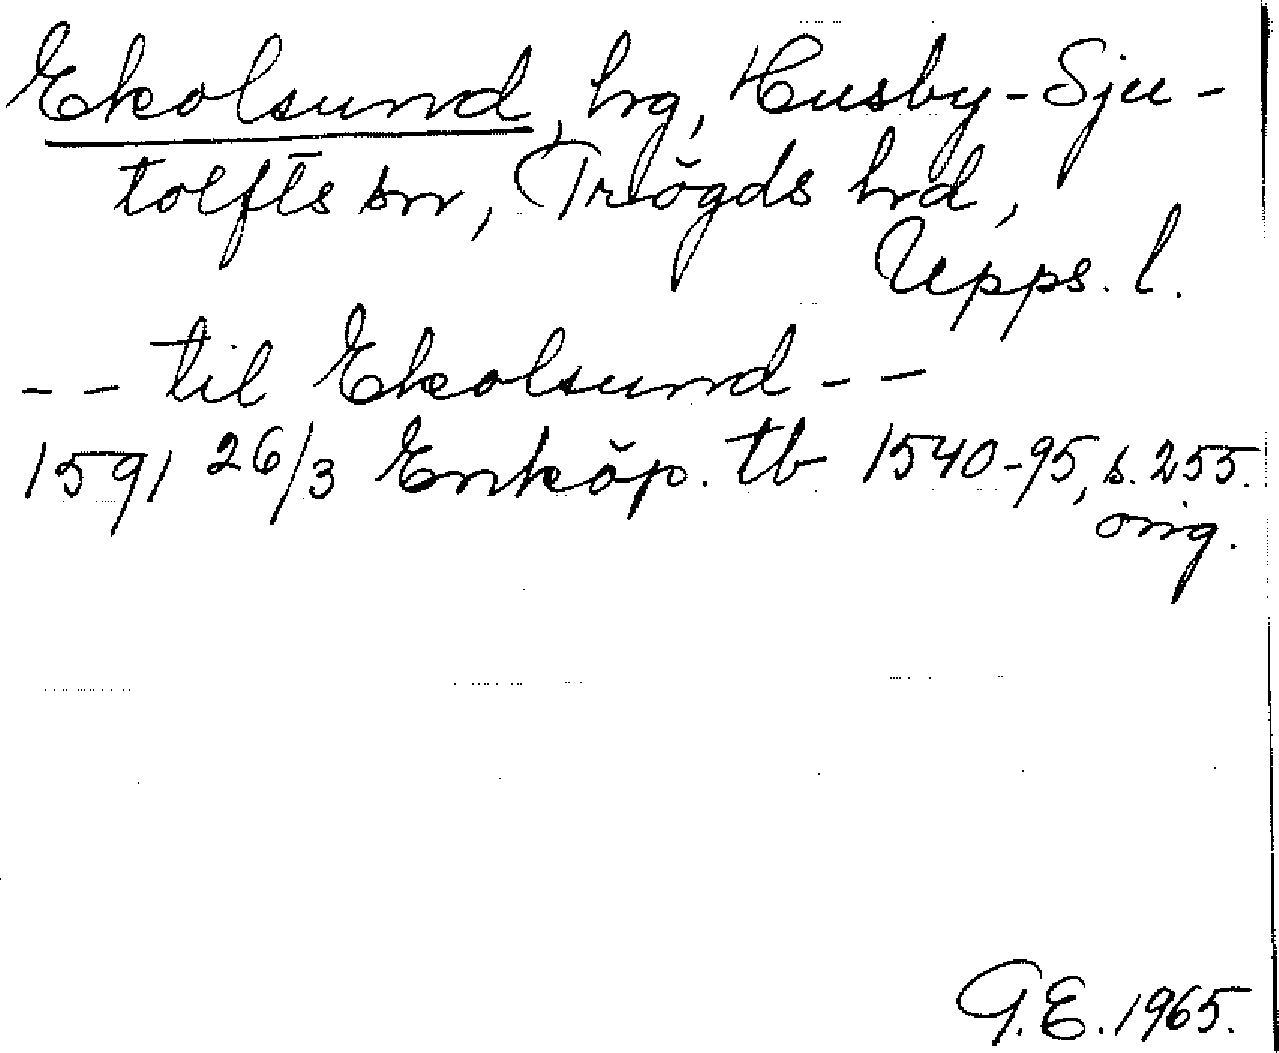 Ekolsund, hrg, Husby-Sju-
tolfts sn, Trögds hrd,
Upps. l.
-- til Ekolsund --
1591 26/3 Enköp. tb 1540-95, s. 255.
orig.
G.E. 1965.